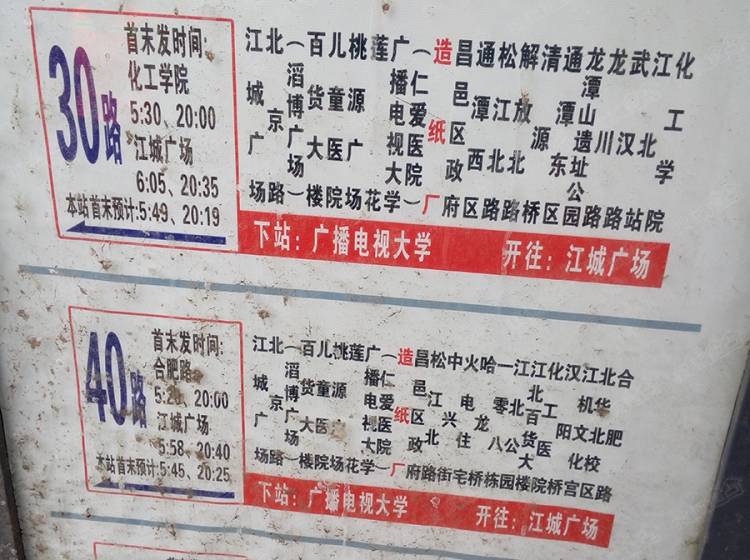 30路
首末发时间:
化工学院
5:30、20:00
江城广场
6:05、20:35
本站首末预计:5:49、20:19
江城广场
北京路
(滔博广场)
百货大楼
儿童医院
桃源广场
莲花
广播电视大学
(仁爱医院)
造纸厂
昌邑区政府
通潭西区
松江北路
解放北路
清源桥
通潭东区
龙潭山遗址公园
龙川路
武汉路
江北站
化工学院
下站: 广播电视大学 开往: 江城广场
40路
首末发时间:
合肥路
5:20、20:00
江城广场
5:58、20:40
本站首末预计:5:45、20:25
江城广场
北京路
(滔博广场)
百货大楼
儿童医院
桃源广场
莲花
广播电视大学
(仁爱医院)
造纸厂
昌邑区政府
松江北路
中兴街
火电住宅
哈龙桥
一零八栋
江北公园
江北百货大楼
化工医院
汉阳桥
江机文化宫
北华北校区
合肥路
下站: 广播电视大学 开往: 江城广场